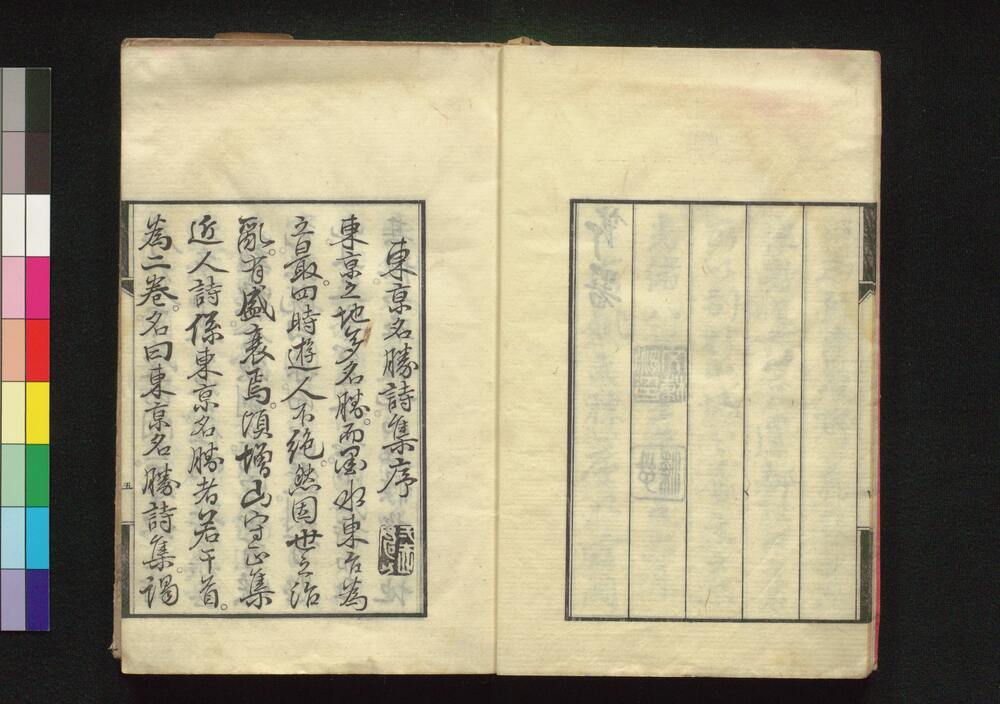 東京名勝詩集序
東京之地多名勝。而墨水東台為
之最。四時遊人不絶。然因世之治
亂。有盛衰焉。頃増山守正集
近人詩係東京名勝者若干首。
為二卷。名曰東京名勝詩集。謁
五